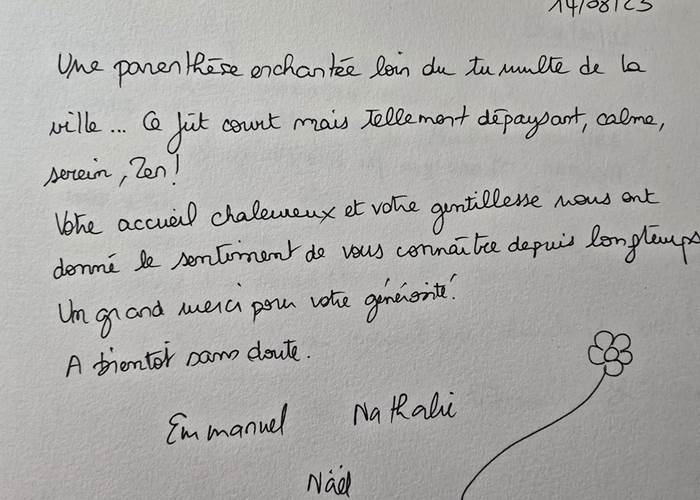 14/08/23
Une parenthèse enchantée loin du tumulte de la
ville... Ce fût court mais tellement dépaysant, calme,
serein, Zen!
Votre accueil chaleureux et votre gentillesse nous ont
donné le sentiment de vous connaître depuis longtemps
Un grand merci pour votre générosité!
A bientôt sans doute.
Emmanuel Nathalie
Näël